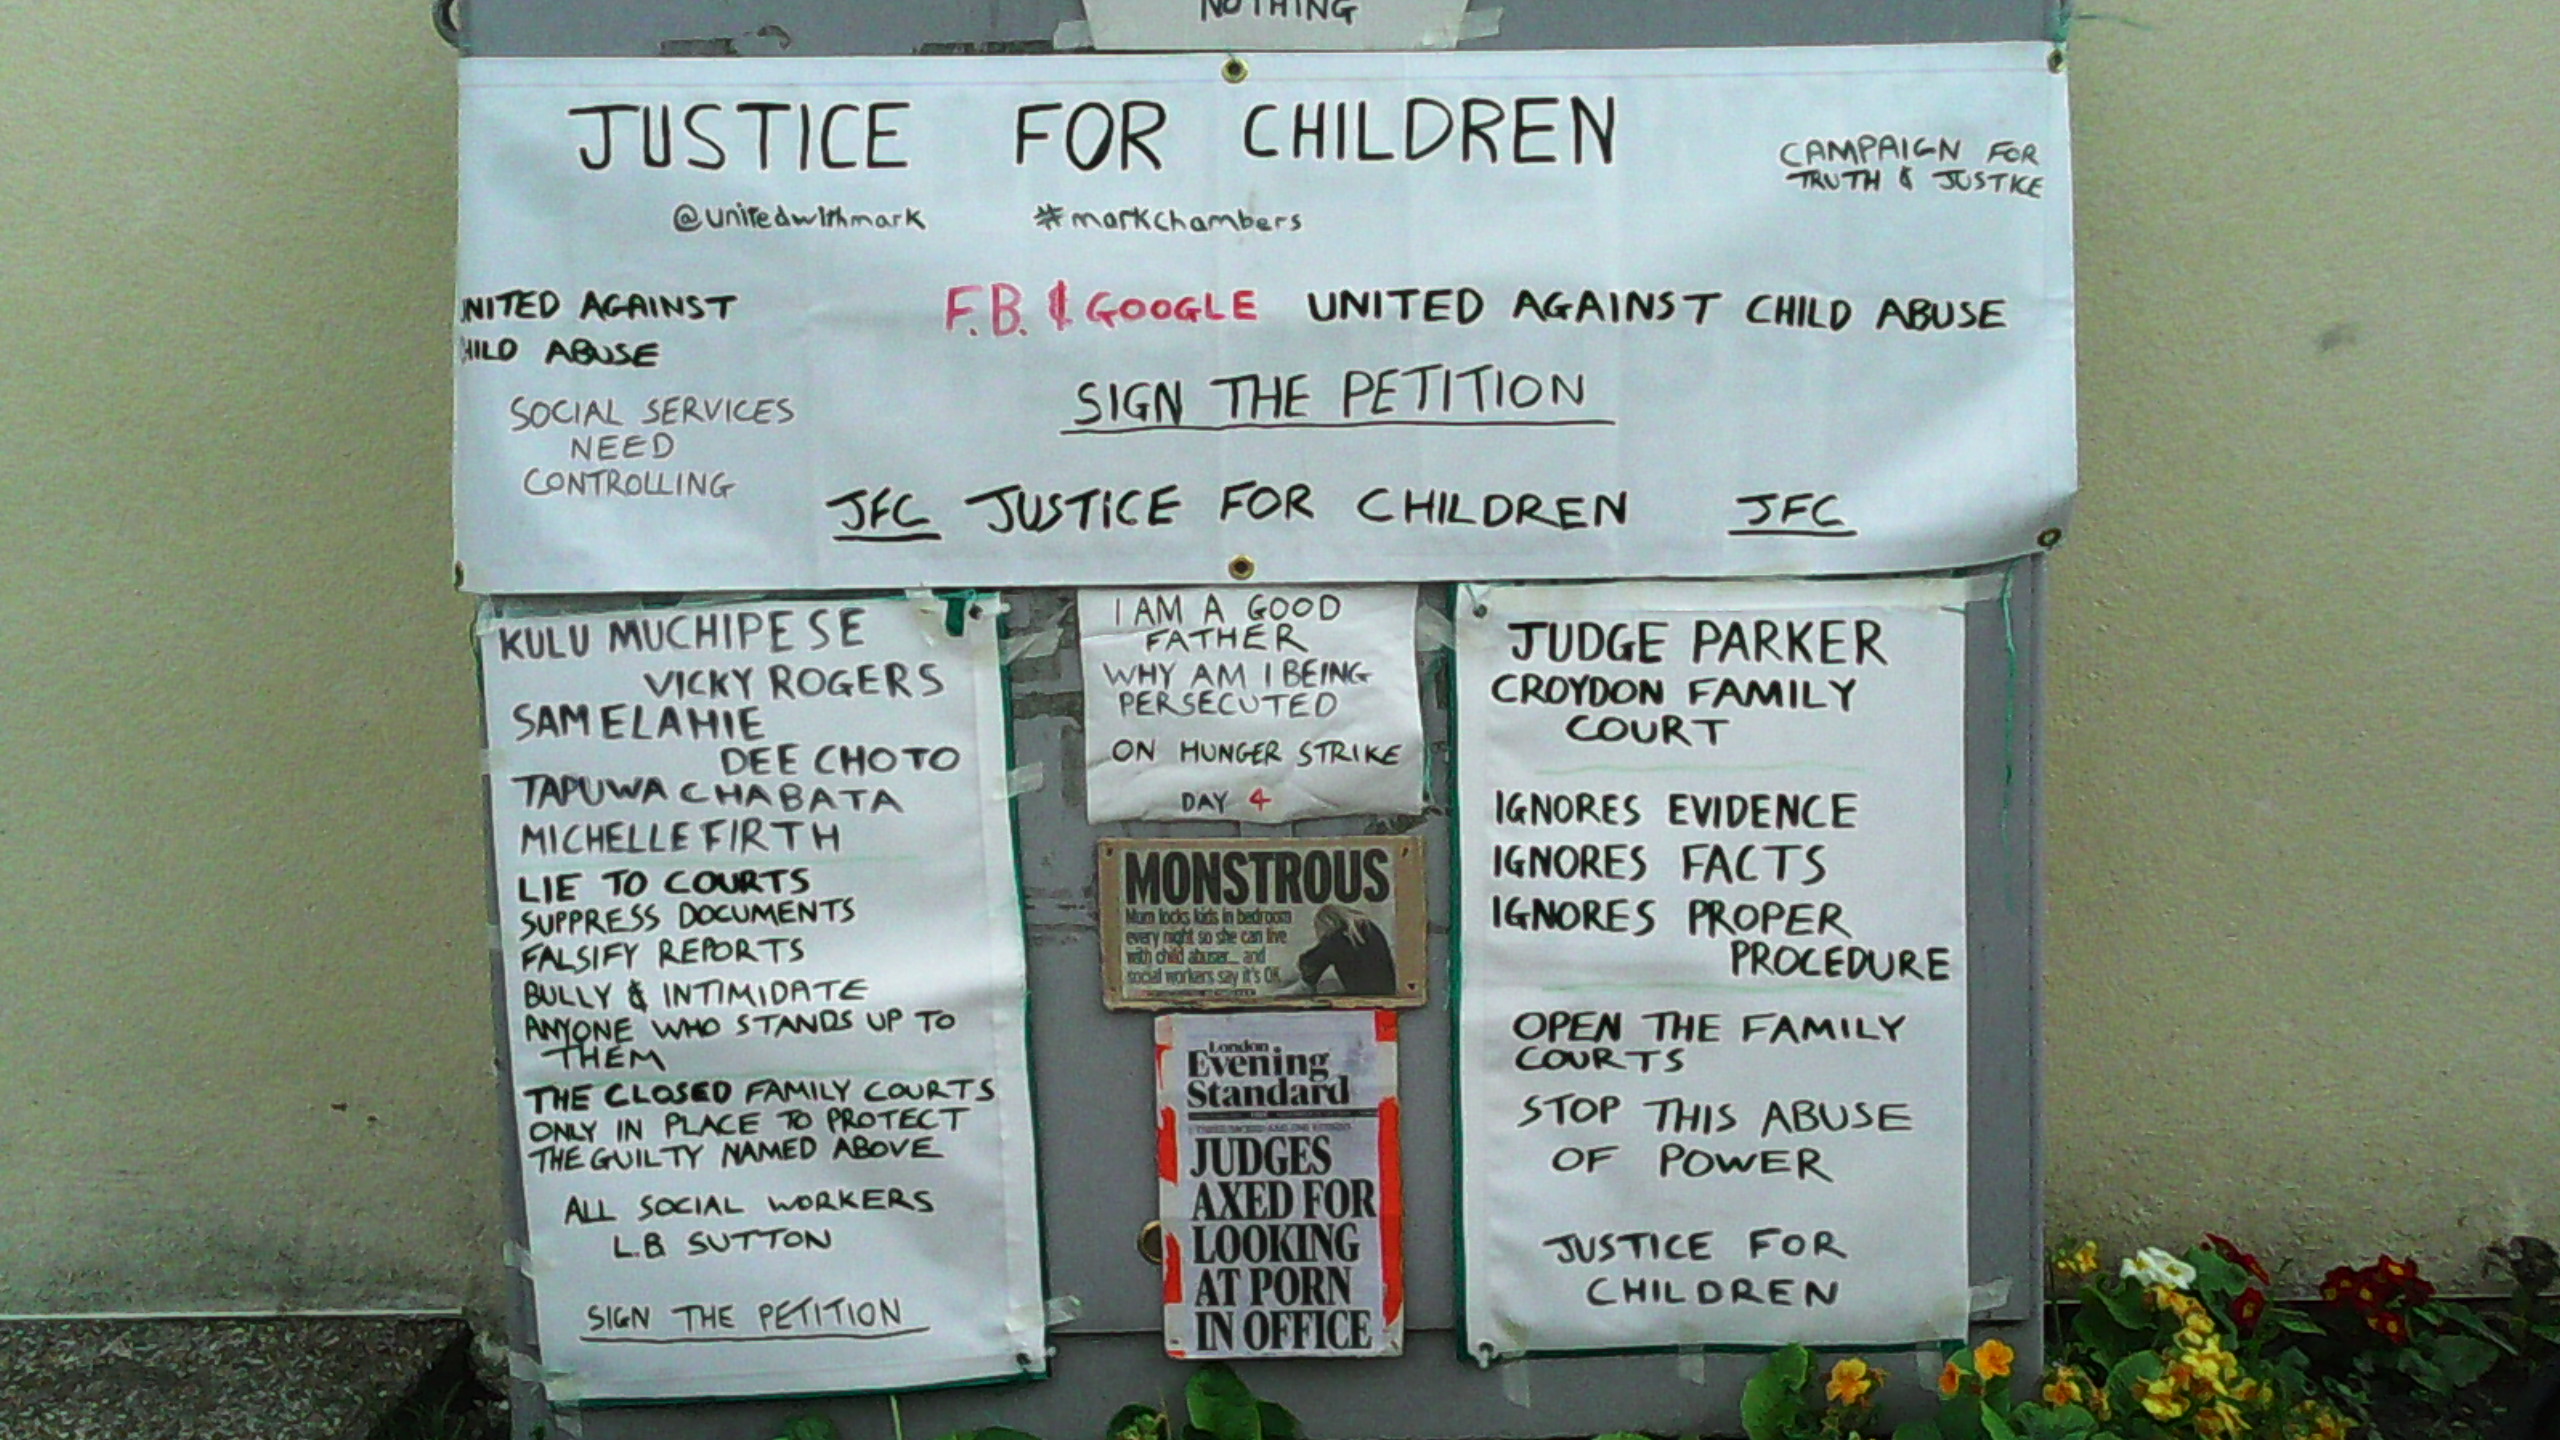 NOTHING
JUSTICE FOR CHILDREN
CAMPAIGN FOR
TRUTH & JUSTICE
@unitedwithmark #markchambers
UNITED AGAINST
CHILD ABUSE
F.B. & GOOGLE UNITED AGAINST CHILD ABUSE
SIGN THE PETITION
SOCIAL SERVICES
NEED
CONTROLLING
JFC JUSTICE FOR CHILDREN JFC
KULU MUCHIPESE
VICKY ROGERS
SAM ELAHIE
DEE CHOTO
TAPUWA CHABATA
MICHELLE FIRTH
LIE TO COURTS
SUPPRESS DOCUMENTS
FALSIFY REPORTS
BULLY & INTIMIDATE
ANYONE WHO STANDS UP TO
THEM
THE CLOSED FAMILY COURTS
ONLY IN PLACE TO PROTECT
THE GUILTY NAMED ABOVE
ALL SOCIAL WORKERS
L.B SUTTON
SIGN THE PETITION
I AM A GOOD
FATHER
WHY AM I BEING
PERSECUTED
ON HUNGER STRIKE
DAY 4
MONSTROUS
Mum locks kids in bedroom
every night so she can live
with child abuser... and
social workers say it's OK
London
Evening
Standard
JUDGES
AXED FOR
LOOKING
AT PORN
IN OFFICE
JUDGE PARKER
CROYDON FAMILY
COURT
IGNORES EVIDENCE
IGNORES FACTS
IGNORES PROPER
PROCEDURE
OPEN THE FAMILY
COURTS
STOP THIS ABUSE
OF POWER
JUSTICE FOR
CHILDREN